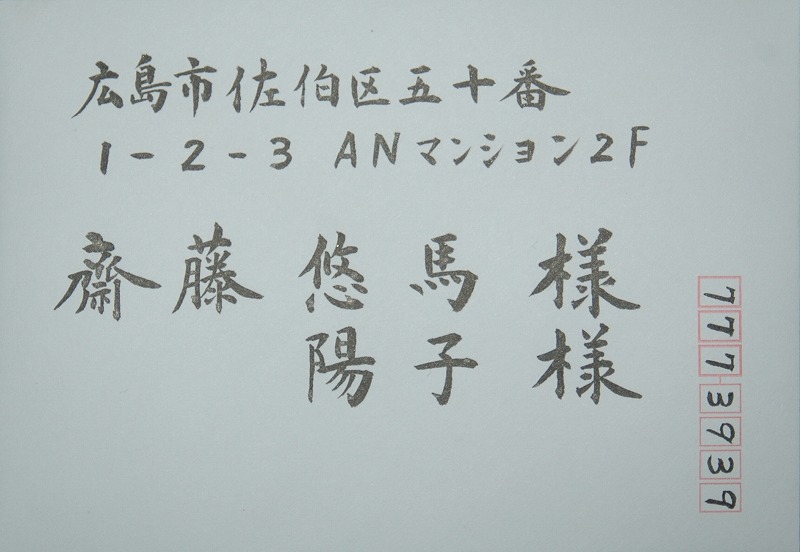 広島市佐伯区五十番
1-2-3 ANマンション2F
齋藤 悠馬 様
陽子 様
7773939